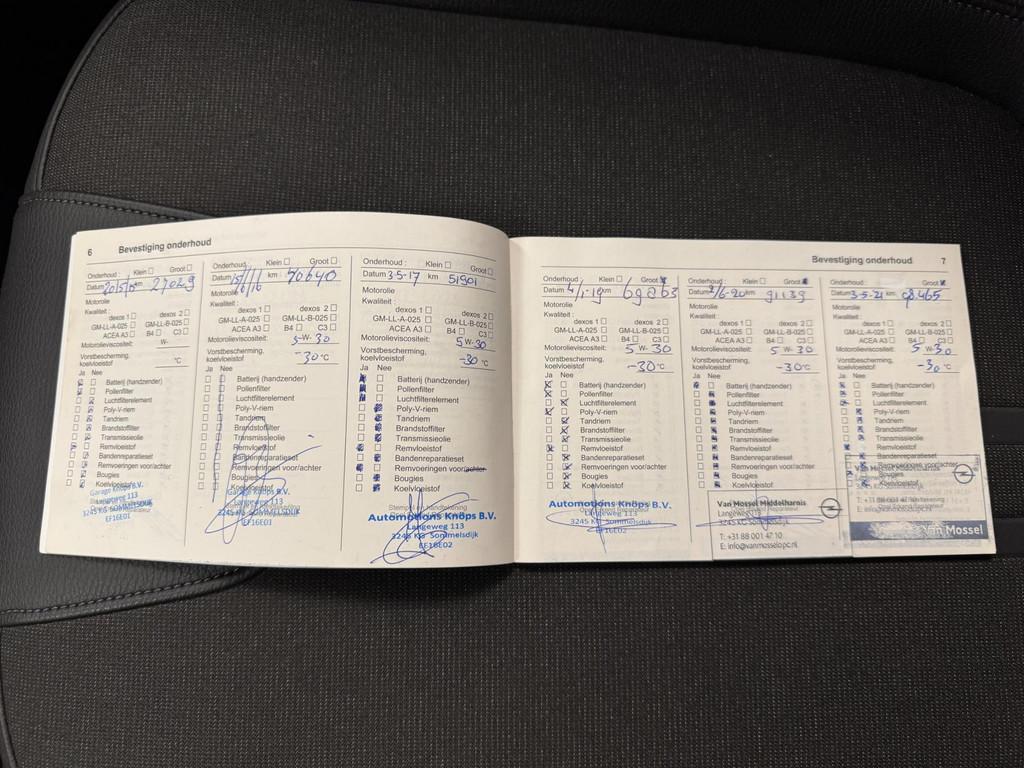 6 Bevestiging onderhoud
Onderhoud : Klein Groot
Datum 20/5/15 km 27029
Motorolie
Kwaliteit :
dexos 1 dexos 2
GM-LL-A-025 GM-LL-B-025
ACEA A3 B4 C3
Motorolieviscositeit: W-
Vorstbescherming,
koelvloeistof °C
Ja Nee
Batterij (handzender)
Pollenfilter
Luchtfilterelement
Poly-V-riem
Tandriem
Brandstoffilter
Transmissieolie
Remvloeistof
Bandenreparatieset
Remvoeringen voor/achter
Bougies
Koelvloeistof
Garage Knöps B.V.
Langeweg 113
3245 KG SOMMELSDIJK
EF16E01
Onderhoud : Klein Groot
Datum km 40640
Motorolie
Kwaliteit :
dexos 1 dexos 2
GM-LL-A-025 GM-LL-B-025
ACEA A3 B4 C3
Motorolieviscositeit: 5-W-30
Vorstbescherming,
koelvloeistof -30°C
Ja Nee
Batterij (handzender)
Pollenfilter
Luchtfilterelement
Poly-V-riem
Tandriem
Brandstoffilter
Transmissieolie
Remvloeistof
Bandenreparatieset
Remvoeringen voor/achter
Bougies
Koelvloeistof
Garage Knöps B.V.
Langeweg 113
3245 KG SOMMELSDIJK
EF16E01
Onderhoud : Klein Groot
Datum 3-5-17 km 51901
Motorolie
Kwaliteit :
dexos 1 dexos 2
GM-LL-A-025 GM-LL-B-025
ACEA A3 B4 C3
Motorolieviscositeit: 5 W-30
Vorstbescherming,
koelvloeistof -30 °C
Ja Nee
Batterij (handzender)
Pollenfilter
Luchtfilterelement
Poly-V-riem
Tandriem
Brandstoffilter
Transmissieolie
Remvloeistof
Bandenreparatieset
Remvoeringen voor/achter
Bougies
Koelvloeistof
Automotions Knöps B.V.
Langeweg 113
3245 KG Sommelsdijk
EF16E02
Bevestiging onderhoud 7
Onderhoud : Klein Groot
Datum 4/1-19 km 69263
Motorolie
Kwaliteit :
dexos 1 dexos 2
GM-LL-A-025 GM-LL-B-025
ACEA A3 B4 C3
Motorolieviscositeit: 5 W 30
Vorstbescherming,
koelvloeistof -30°C
Ja Nee
Batterij (handzender)
Pollenfilter
Luchtfilterelement
Poly-V-riem
Tandriem
Brandstoffilter
Transmissieolie
Remvloeistof
Bandenreparatieset
Remvoeringen voor/achter
Bougies
Koelvloeistof
Automotions Knöps B.V.
Langeweg 113
3245 KG Sommelsdijk
EF16E02
Onderhoud : Klein Groot
Datum 2/6-20 km 91139
Motorolie
Kwaliteit :
dexos 1 dexos 2
GM-LL-A-025 GM-LL-B-025
ACEA A3 B4 C3
Motorolieviscositeit: 5 W-30
Vorstbescherming,
koelvloeistof -30°C
Ja Nee
Batterij (handzender)
Pollenfilter
Luchtfilterelement
Poly-V-riem
Tandriem
Brandstoffilter
Transmissieolie
Remvloeistof
Bandenreparatieset
Remvoeringen voor/achter
Bougies
Koelvloeistof
Van Mossel Middelharnis
Langeweg 113
3245 KG Sommelsdijk
T: +31 88 001 47 10
E: info@vanmosselopc.nl
Onderhoud : Klein Groot
Datum 3-5-21 km 98465
Motorolie
Kwaliteit :
dexos 1 dexos 2
GM-LL-A-025 GM-LL-B-025
ACEA A3 B4 C3
Motorolieviscositeit: 5 W-30
Vorstbescherming,
koelvloeistof -30°C
Ja Nee
Batterij (handzender)
Pollenfilter
Luchtfilterelement
Poly-V-riem
Tandriem
Brandstoffilter
Transmissieolie
Remvloeistof
Bandenreparatieset
Remvoeringen voor/achter
Bougies
Koelvloeistof
Van Mossel